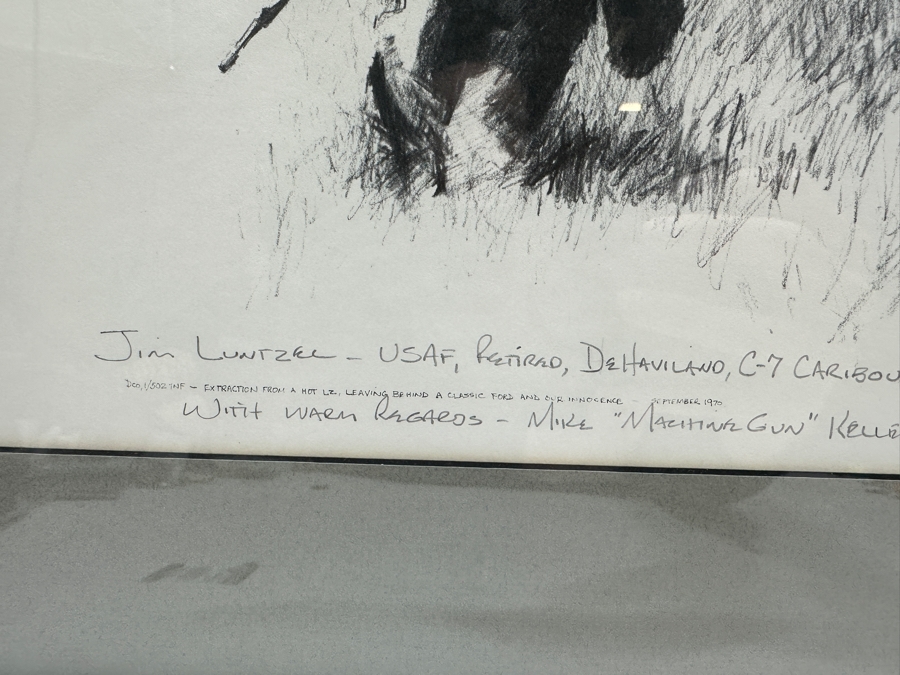 Jim Luntzel – USAF, Retired, DeHaviland, C-7 Caribou
Dco, 1/502 INF – EXTRACTION FROM A HOT LZ, LEAVING BEHIND A CLASSIC FORD AND OUR INNOCENCE – SEPTEMBER 1970
With warm Regards – Mike "Machine Gun" Kelle